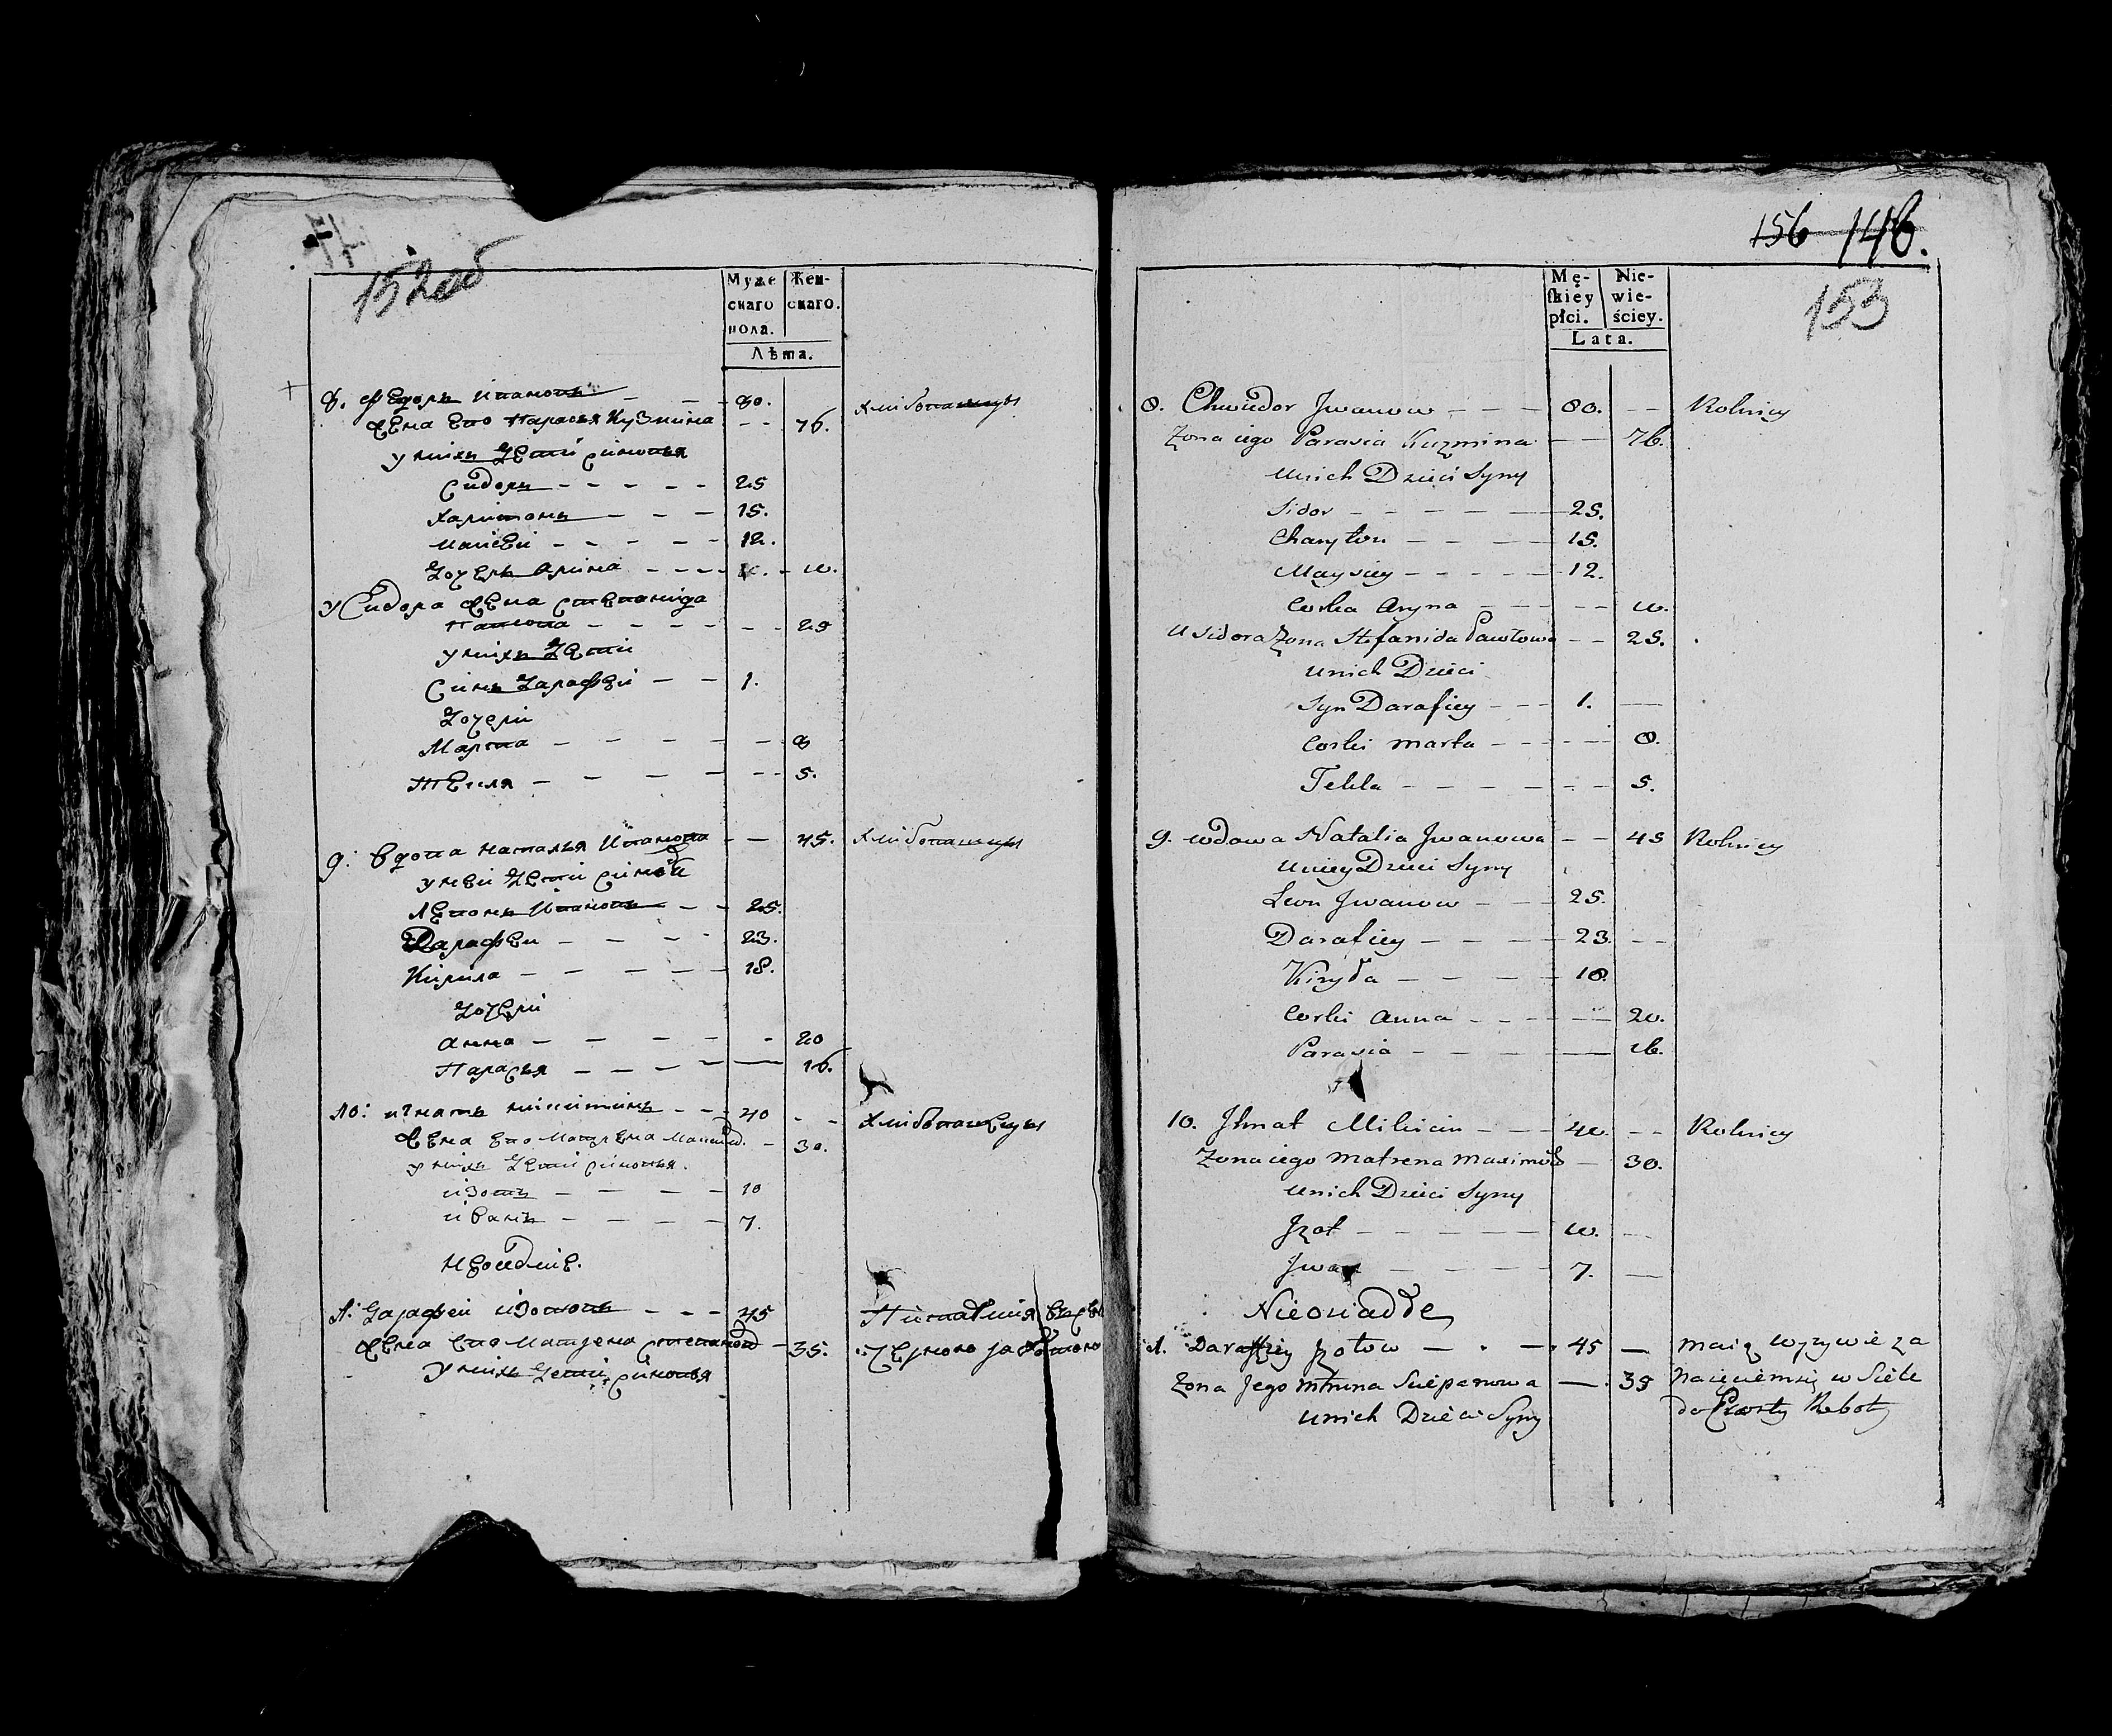 152об
Муже
скаго
пола.
Жен-
скаго.
Лѣта.
8. Федоръ Ивановъ - - - 80. хлибопашцы
жена ево Парасья Кузмина - - 76.
у нихъ дети синовья
Сидоръ - - - - - 25
Харитонъ - - - 15.
Маисей - - - - - 12.
дочерь Арина - - - - 10.
у Сидора жена Степанида
Павлова - - - - - - 25
у нихъ дети
Синъ Дарафей - - 1.
дочери
Марта - - - - - - 8
Текля - - - - - - 5.
9. вдова наталья Иванова - - 45. хлибопашцы
у ней дети синовя
Левонъ Ивановъ - - 25.
Дарафей - - - - 23.
Кирила - - - - - 18.
дочери
анна - - - - - 20
Парасья - - - - - 16.
10: игнатъ микитинъ - - - 40 - - хлибопашецы
жена ево Матрена Максимов. - 30.
у нихъ дети синовья.
изотъ - - - - 10
иванъ - - - - 7.
неоседлие.
1: Дарафей изотовъ - - - 45
жена ево Матрена степанов - 35.
у нихъ дети синовья
156 146.
153
Mę-
skiey
płci.
Nie-
wie-
ściey.
Lata.
8. Chwiedor Jwanow - - - 80. - - Rolnicy
Żona iego Parasia Kuzmina - - 76.
unich Dzieci Syny
Sidor - - - - - 25.
Charyton - - - - 15.
Maysiey - - - - - 12.
Corka Aryna - - - - 10.
u Sidora Żona Stefanida Pawłowa - - 25.
unich Dzieci
Syn Darafiey - - - 1. -
Corki Marta - - - - - 8.
Tekla - - - - - - - 5.
9. wdowa Natalia Jwanowa - - 45 Rolnicy
u niey Dzieci Syny
Leon Jwanow - - - 25.
Darafiey - - - - 23. - -
Kiryła - - - - - 18.
Corki Anna - - - - 20.
Parasia - - - - - 16.
10. Jhnat Mikicin - - - 40. - - Rolnicy
Żona iego Matrena Maximow - 30.
unich Dzieci Syny
Jzot - - - - - 10. -
Jwan - - - - 7. -
Nieosiadłe
1. Darafiey Jzotow - - - 45 - maią wyżywię za
Żona Jego Matrena Sciepanowa - 35 naięciemsię w Siele
unich Dzieci Syny do Roboty